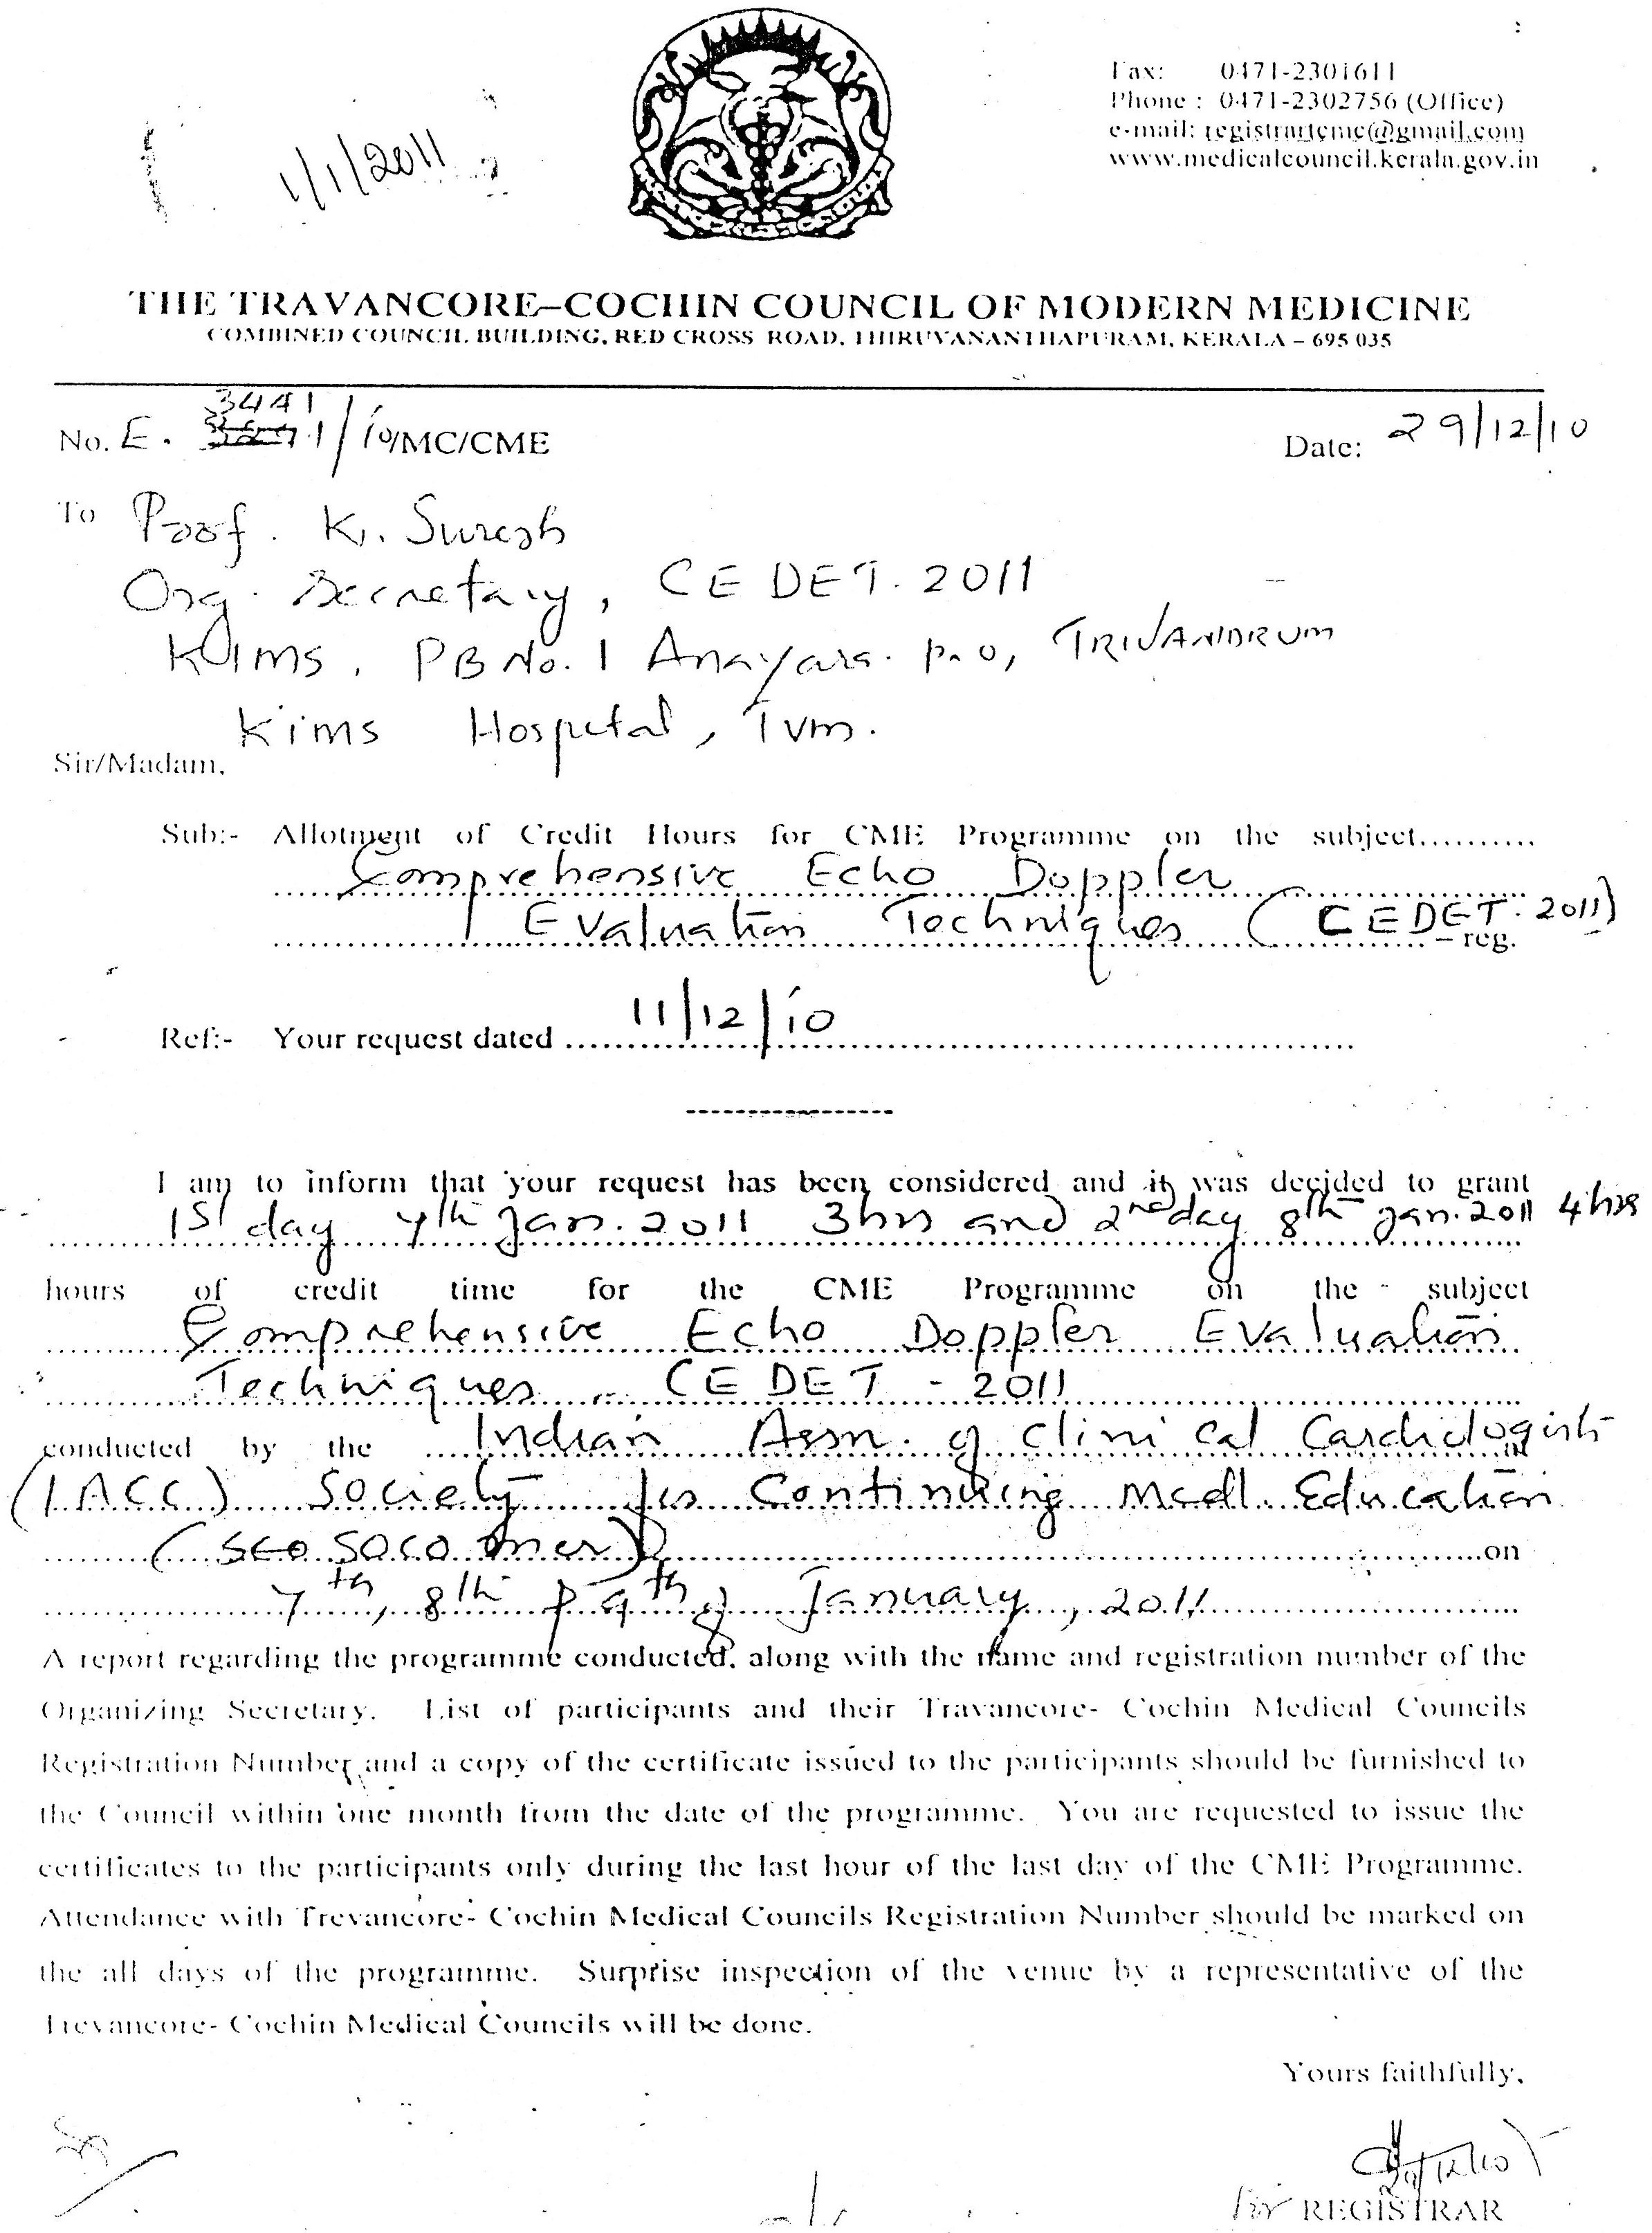 Fax: 0471-2301611
Phone : 0471-2302756 (Office)
e-mail: registrartcmc@gmail.com
www.medicalcouncil.kerala.gov.in
1/1/2011
THE TRAVANCORE–COCHIN COUNCIL OF MODERN MEDICINE
COMBINED COUNCIL BUILDING, RED CROSS ROAD, THIRUVANANTHAPURAM, KERALA – 695 035
3441
No. E. /10/MC/CME Date: 29/12/10
To Prof. K. Suresh
Org. Secretary, CEDET. 2011
KIMS, PB No. 1 Anayara. P.O, TRIVANDRUM
Kims Hospital, Tvm.
Sir/Madam,
Sub:- Allotment of Credit Hours for CME Programme on the subject..........
Comprehensive Echo Doppler
Evaluation Techniques (CEDET. 2011)
– reg.
Ref:- Your request dated 11/12/10
-----------------
I am to inform that your request has been considered and it was decided to grant
1st day 7th Jan. 2011 3hrs and 2nd day 8th Jan. 2011 4hrs
hours of credit time for the CME Programme on the subject
Comprehensive Echo Doppler Evaluation
Techniques CEDET - 2011
conducted by the Indian Assn. of Clinical Cardiologists
(IACC) Society for Continuing Medl. Education
(SOCOMER) on
7th, 8th & 9th of January, 2011
A report regarding the programme conducted, along with the name and registration number of the
Organizing Secretary. List of participants and their Travancore- Cochin Medical Councils
Registration Number and a copy of the certificate issued to the participants should be furnished to
the Council within one month from the date of the programme. You are requested to issue the
certificates to the participants only during the last hour of the last day of the CME Programme.
Attendance with Trevancore- Cochin Medical Councils Registration Number should be marked on
the all days of the programme. Surprise inspection of the venue by a representative of the
Trevancore- Cochin Medical Councils will be done.
Yours faithfully,
for REGISTRAR